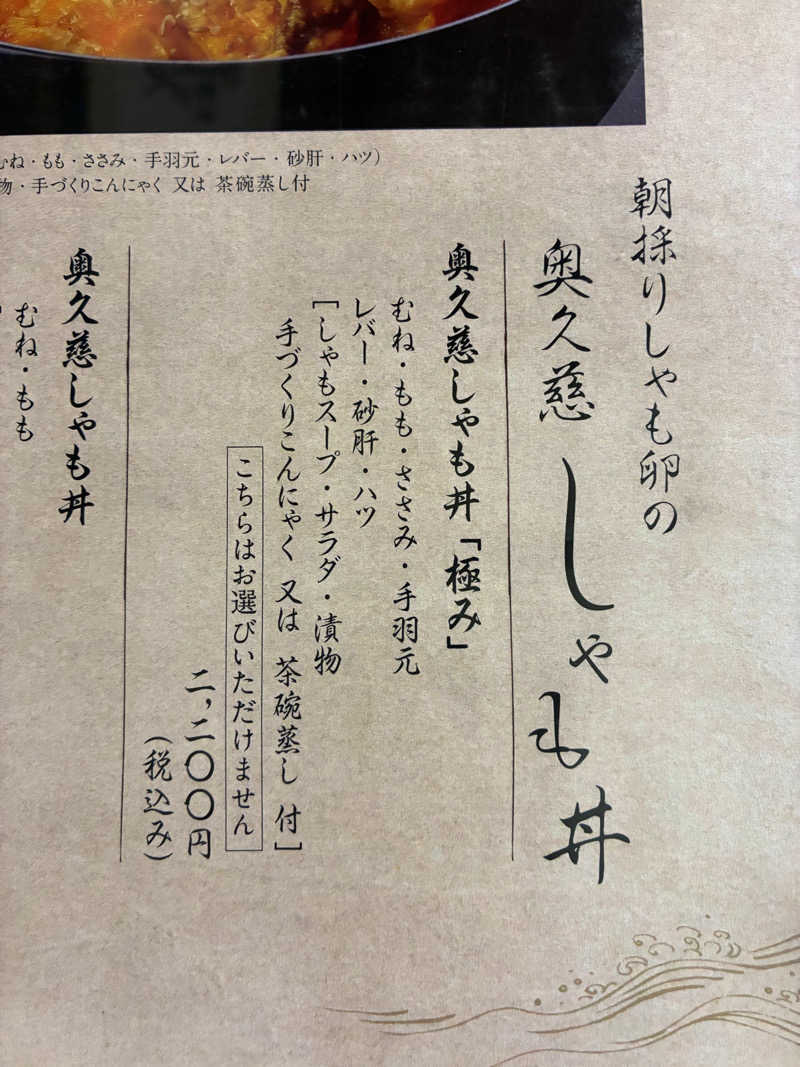 むね・もも・ささみ・手羽元・レバー・砂肝・ハツ）
物・手づくりこんにゃく 又は 茶碗蒸し付
朝採りしゃも卵の
奥久慈しゃも丼
奥久慈しゃも丼「極み」
むね・もも・ささみ・手羽元
レバー・砂肝・ハツ
［しゃもスープ・サラダ・漬物
手づくりこんにゃく 又は 茶碗蒸し 付］
こちらはお選びいただけません
二,二〇〇円
（税込み）
奥久慈しゃも丼
むね・もも